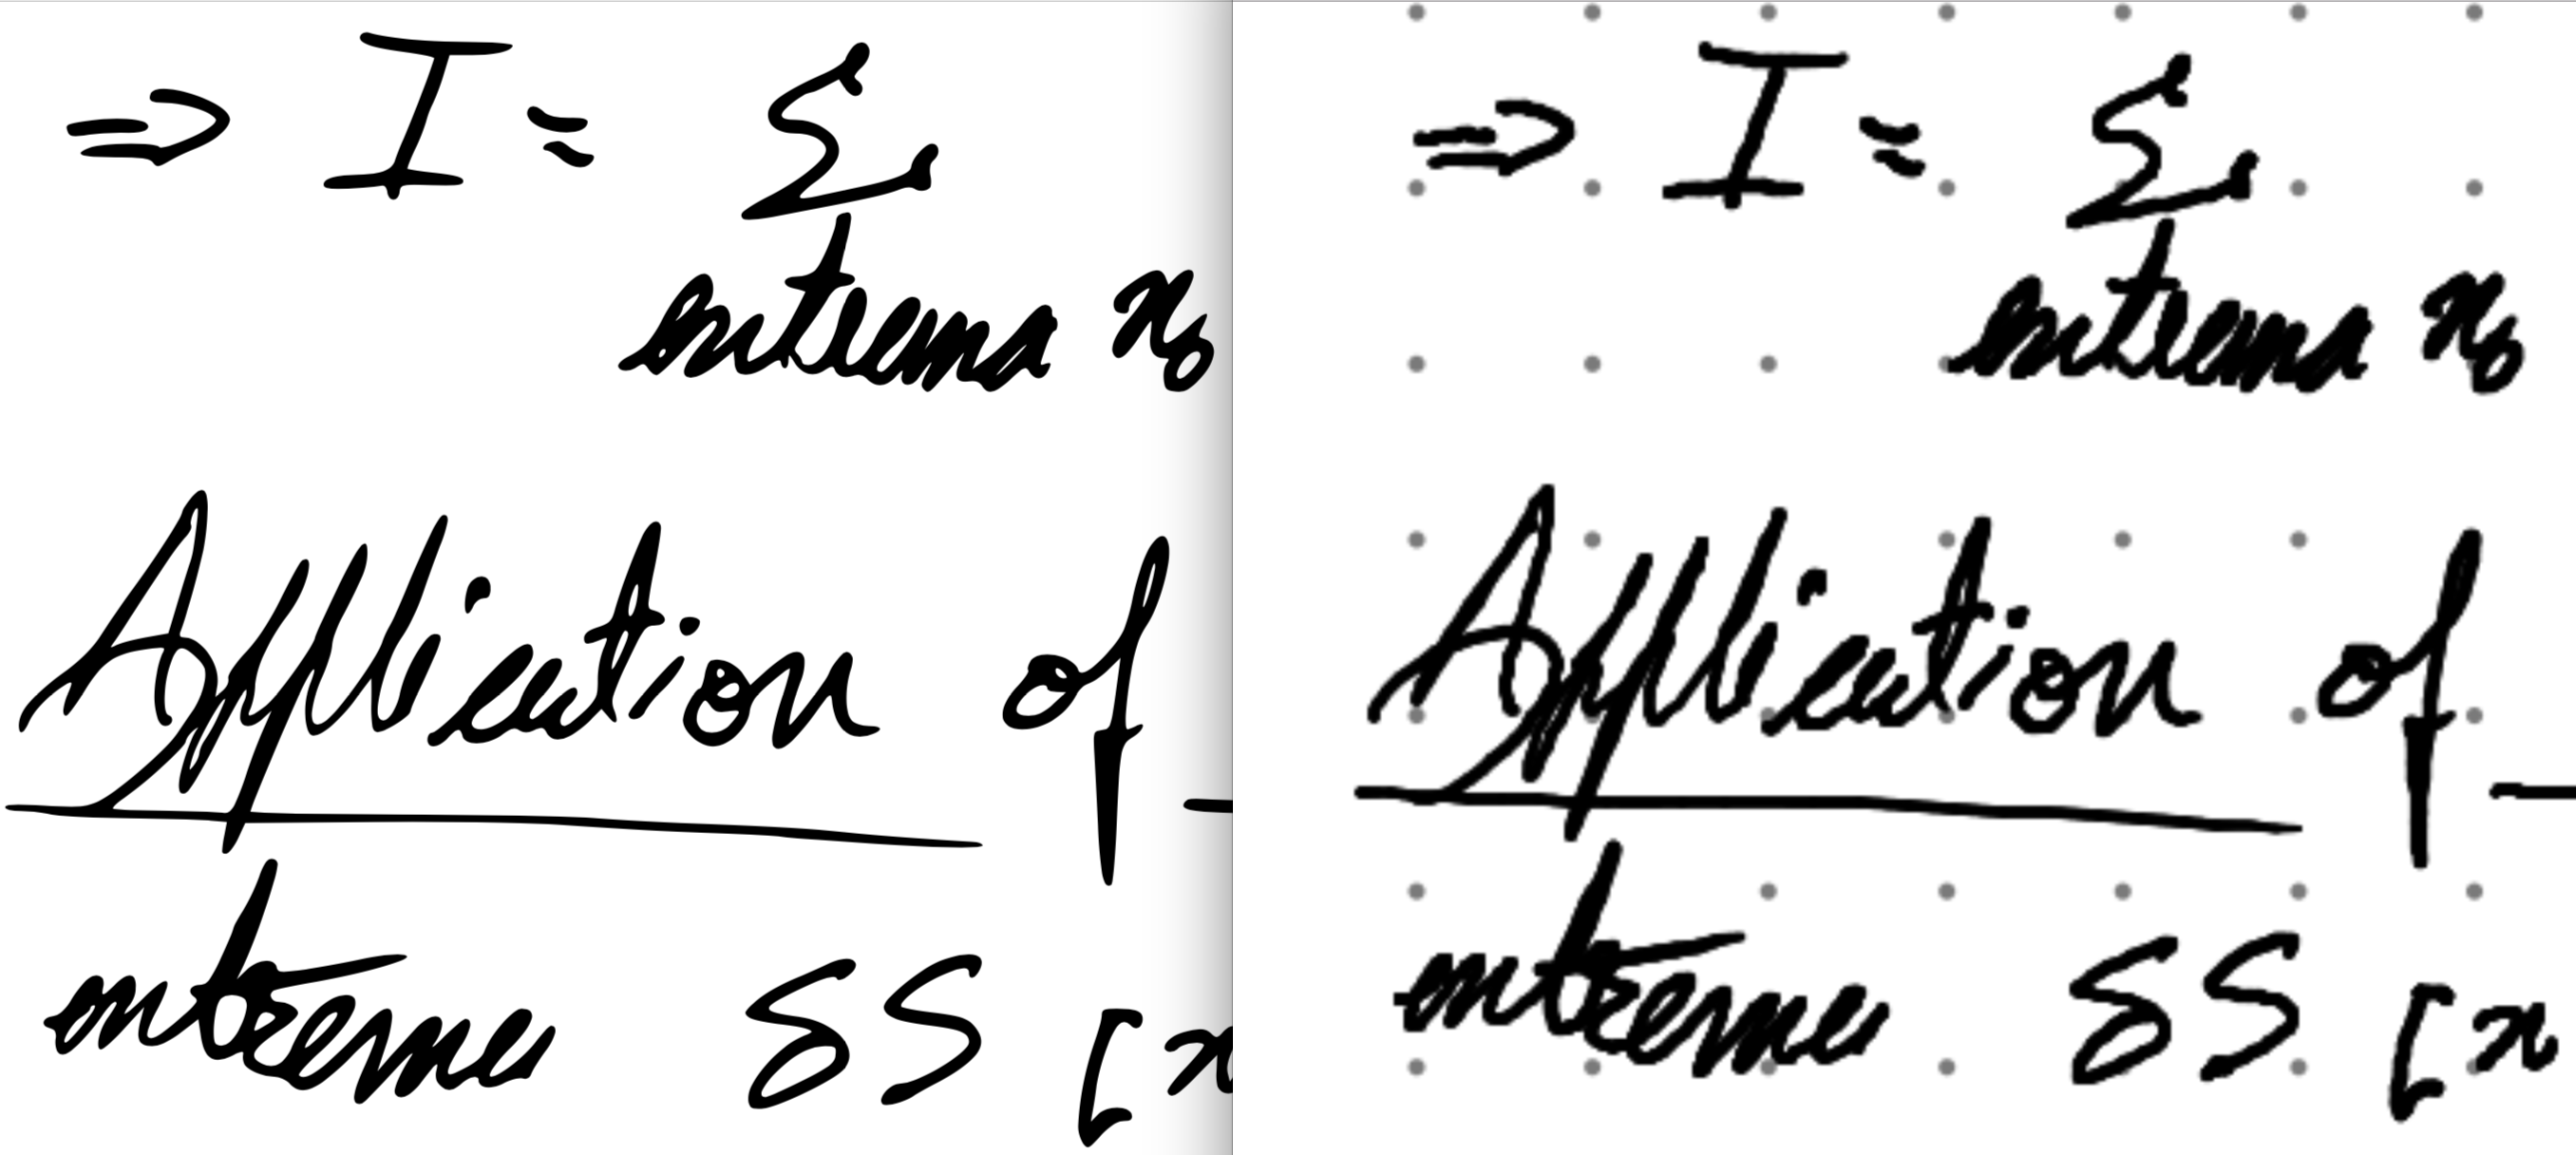 ⇒ I = Σ
extrema x₀
Application of
extreme δS [x
⇒ I = Σ
extrema x₀
Application of
extreme δS [x